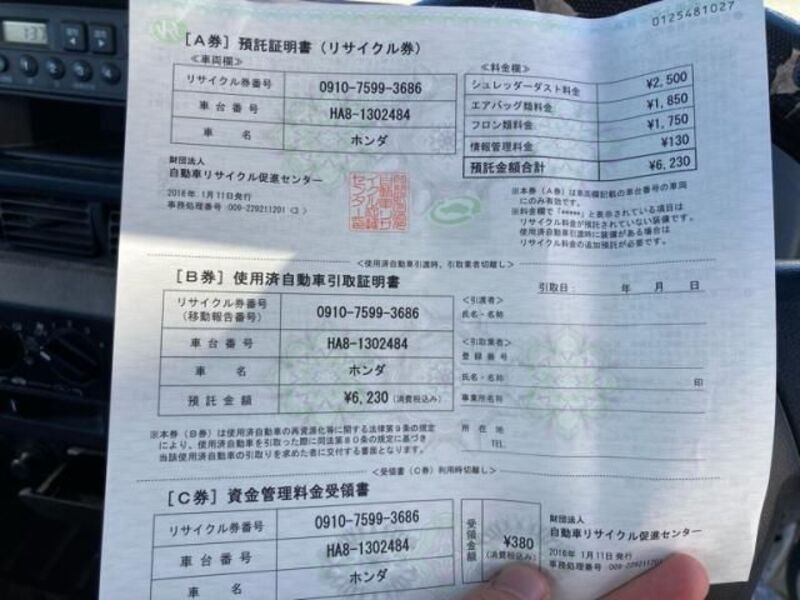 0125481027
[A券] 預託証明書(リサイクル券)
<車両欄>
リサイクル券番号 0910-7599-3686
車台番号 HA8-1302484
車名 ホンダ
<料金欄>
シュレッダーダスト料金 ¥2,500
エアバッグ類料金 ¥1,850
フロン類料金 ¥1,750
情報管理料金 ¥130
預託金額合計 ¥6,230
財団法人
自動車リサイクル促進センター
2016年 1月11日発行
事務処理番号:009-229211201 <3>
※本券(A券)は車両欄記載の車台番号の車両
にのみ有効です。
※料金欄で「*****」と表示されている項目は
リサイクル料金が預託されていない装備です。
使用済自動車引渡時に装備がある場合は
リサイクル料金の追加預託が必要です。
<使用済自動車引渡時、引取業者切離し>
[B券] 使用済自動車引取証明書
リサイクル券番号
(移動報告番号) 0910-7599-3686
車台番号 HA8-1302484
車名 ホンダ
預託金額 ¥6,230 (消費税込み)
引取日: 年 月 日
<引渡者>
氏名・名称
<引取業者>
登録番号
氏名・名称 印
事業所名称
所在地
TEL
※本券(B券)は使用済自動車の再資源化等に関する法律第9条の規定
により、使用済自動車を引取った際に同法第80条の規定に基づき
当該使用済自動車の引取りを求めた者に交付する書面となります。
<受領書(C券)利用時切離し>
[C券] 資金管理料金受領書
リサイクル券番号 0910-7599-3686
車台番号 HA8-1302484
車名 ホンダ
受領金額 ¥380
(消費税込み)
財団法人
自動車リサイクル促進センター
2016年 1月11日発行
事務処理番号:009-229211201